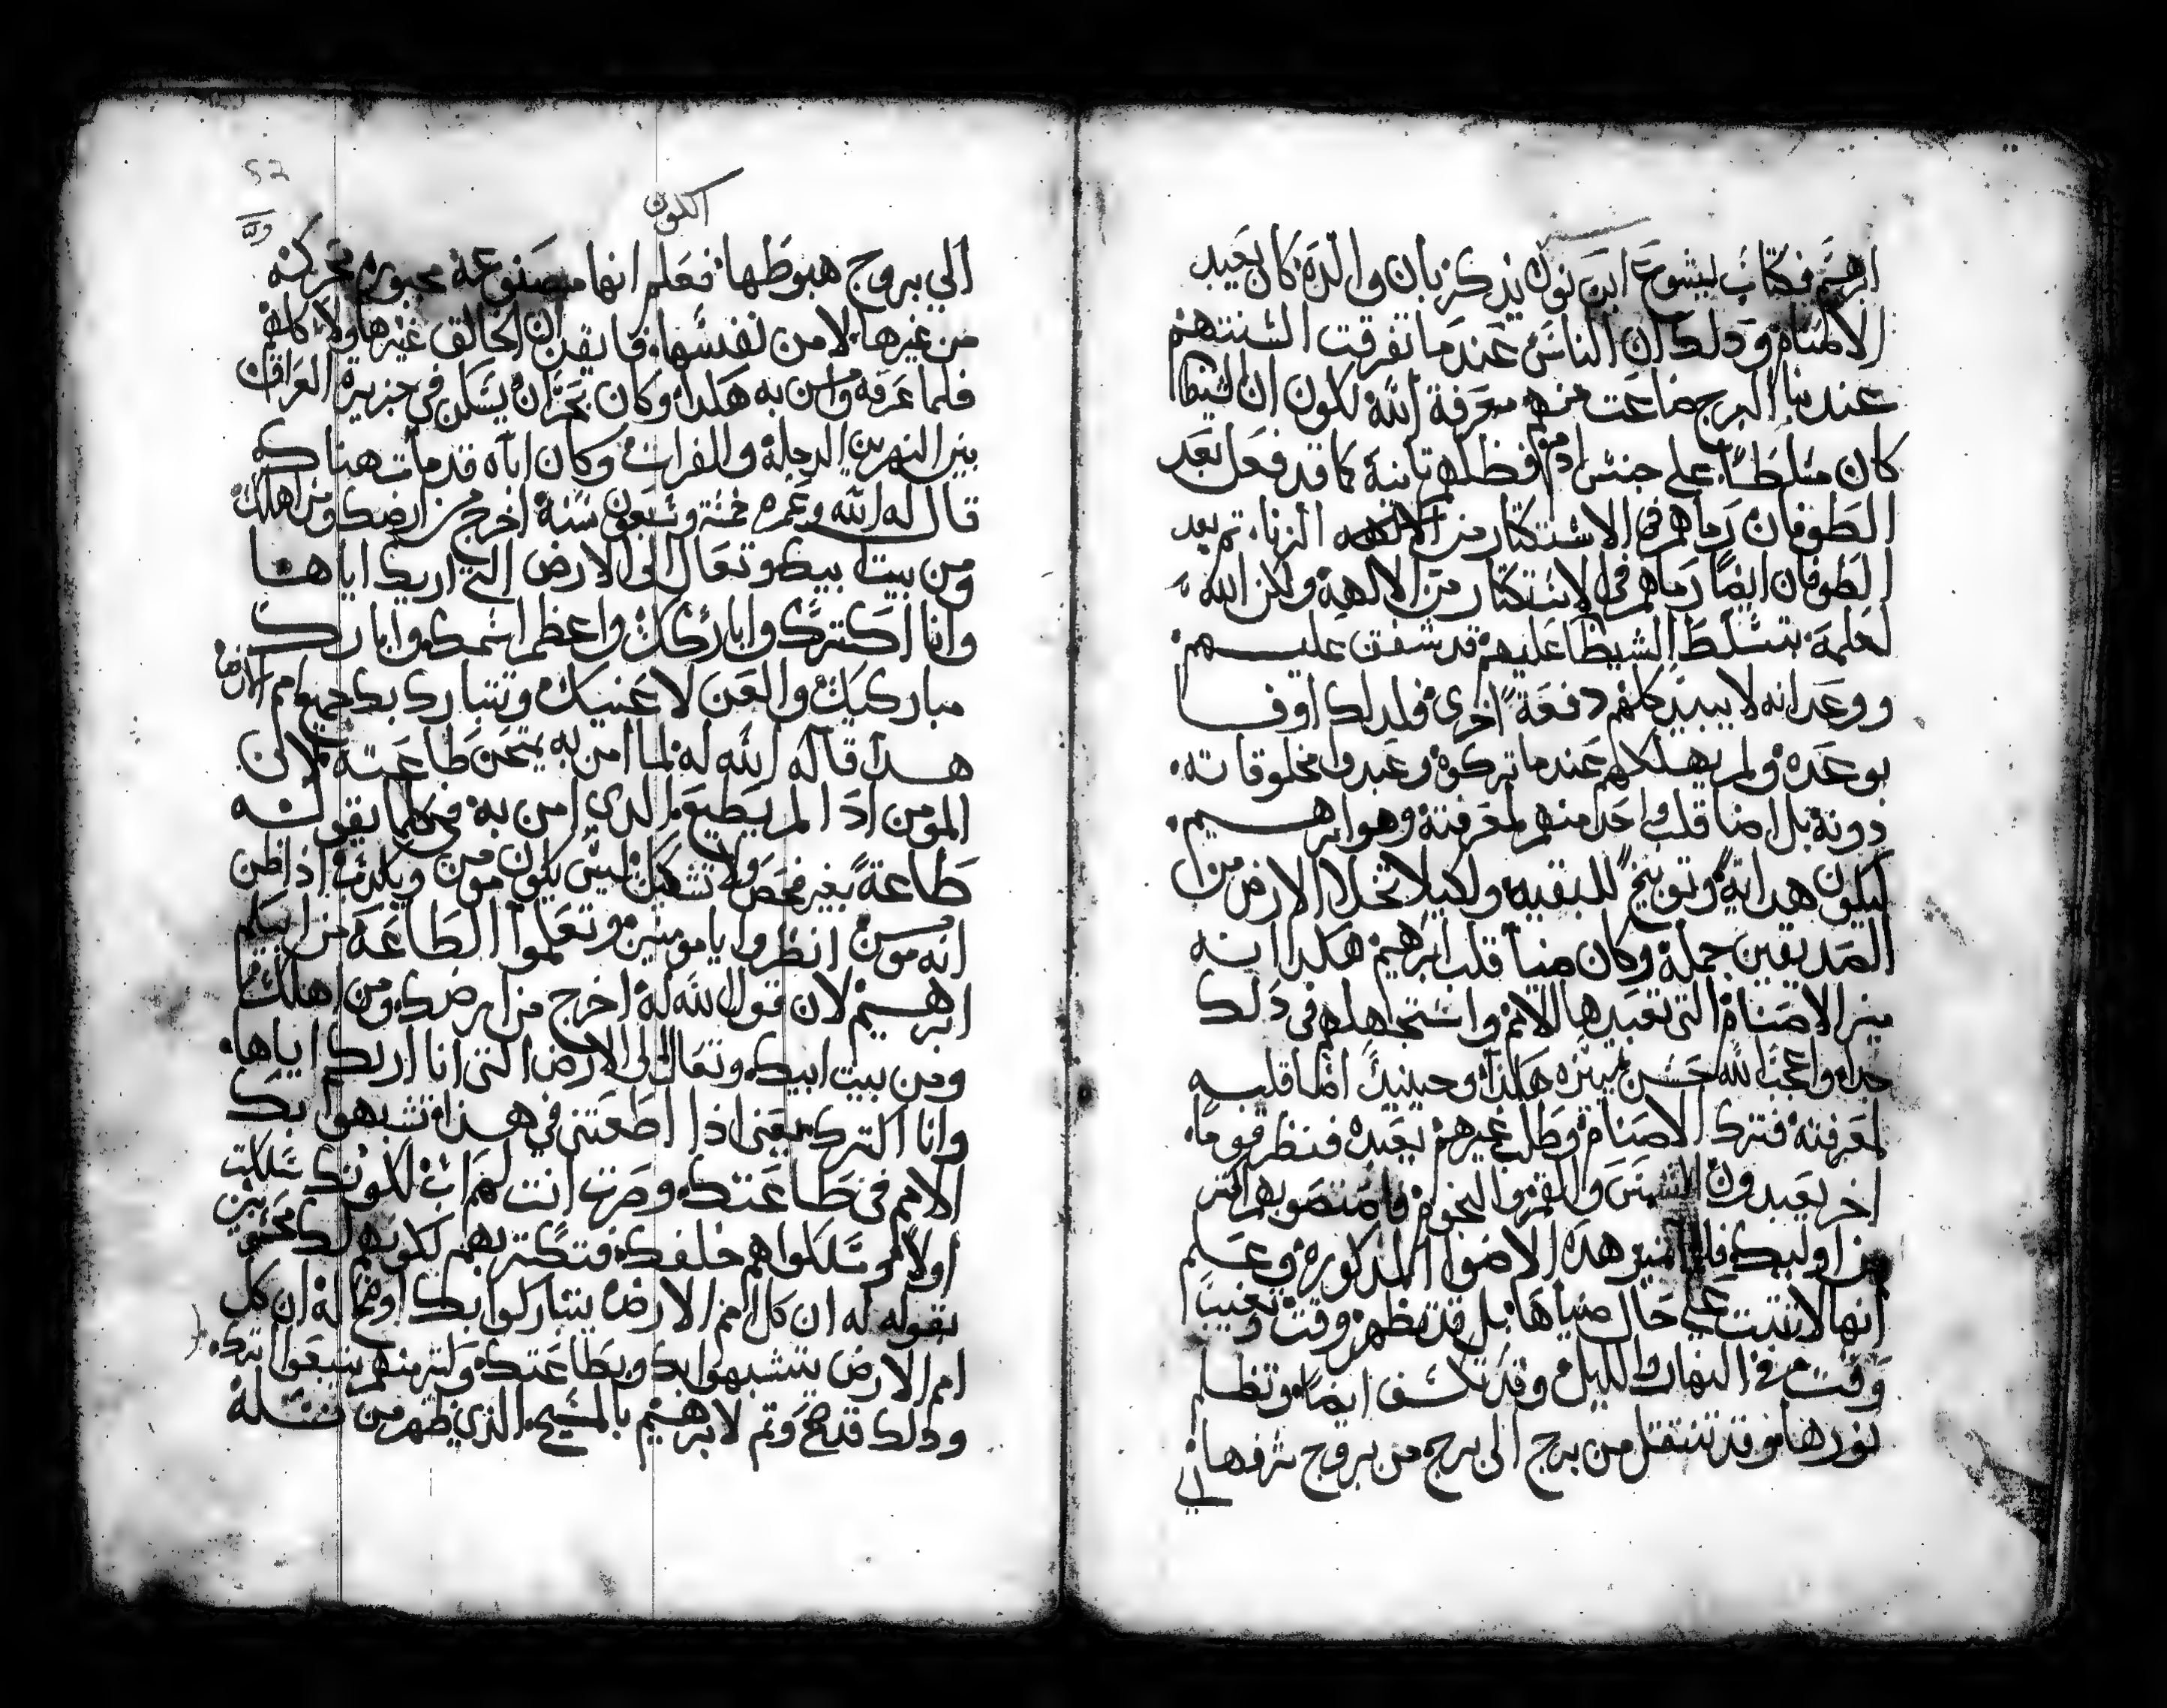 ابرهيم فكتاب ليشوع ابن نون يذكر بان والده كان يعبد
الاصنام وذلك ان الناس عندما تفرقت السنتهم
عند بنا البرج ضاعت منهم معرفة الله لكون ان الشيطان
كان متسلطاً على جنس ادم فظلهم تانية كما قد فعل بعد
الطوفان رماهم في الاستكتار من الزنا. تم بعد
الطوفان ايضاً رماهم في الاستكتار من الالهة ولكن الله
لعلمه بتسلط الشيطان عليهم قد شفق عليهم.
ووعد انه لا يبيد كلهم دفعة اخرى فلدلك اوفا
بوعده ولم يهلكهم عندما تركوه وعبدوا مخلوقاته.
دونه بل اضا قلب واحد منهم لمعرفته وهو ابرهيم.
ليكون هداية وتوبيخ للبقيه ولكيلا تخلا الارض من
الصديقين جملة وكان ضيا قلب ابرهيم هكدا انه
ميز الاصنام التي تعبدها الامم واستجهلهم في دلك
جدا واعجب الله حسن ميزه هكدا وحينيد اضا قلبه
لمعرفته فترك الاصنام وطلب غيرهم يعبده فنظر قوما
اخر يعبدون الشمس والقمر والنجوم
من اوليك هده الاضوا المدكورة وعلم
انها لا تتبت على حال ضياها بل قد تظهر وقت وتغيب
وقت في النهار والليل وقد تكسف ايضا وتظلم
نورها وقد تنتقل من برج الى برج من بروج شرفها
الي
الكون
52
الي بروج هبوطها فعلم انها مصنوعة مجبوره متحركة
من غيرها لا من نفسها فايقن ان الخالق غيرها
فلما عرفه وامن به هكدا وكان بحران يسكن في جزيرة العراق
بين النهرين الدجلة والفرات وكان اباه قد مات هناك
قال له الله وعمره خمسة وسبعون سنة اخرج من ارضك ومن اهلك
ومن بيت ابيك وتعال الى الارض التي اريك اياها
وانا اكترك واباركك واعظم اسمك وابارك
مباركيك والعن لاعنيك وتتبارك بك جميع امم الارض
هدا قاله الله له لما امن به يمتحن طاعته لان
المومن ادا لم يطيع الدي امن به في كلما يقوله
طاعة بغير فحص ولا تشكك ليس يكون مومن ويكدب اذا ظن
انه مومن انظروا يا مومنين وتعلموا الطاعة من ابيكم
ابرهيم لان قول الله له اخرج من ارضك ومن اهلك
ومن بيت ابيك وتعال الى الارض التي انا اريك اياها.
وانا اكترك يعني اذا اطعتني في هذا تشبهوا بك
الامم في طاعتك وصرت انت لهم اب لكونك سلكت
اولاً وسلكوا هم خلفك فتكتر بهم لكونهم لك محسوبين
بقوله له ان كل امم الارض يتباركوا بك اوضح له ان كل
امم الارض يتشبهوا بك وبطاعتك
ودلك قد صح وتم لابرهيم بالمسيح الدي ظهر من نسله